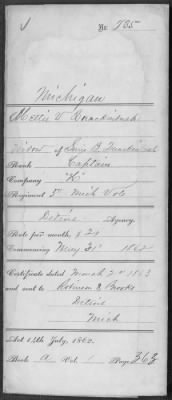 No. 785
Michigan
Mollie V. Quackenbush
Widow of Louis B. Quackenbush
Rank Captain
Company "K"
Regiment 5" Mich Vols
Detroit Agency.
Rate per month, $ 20
Commencing May 31" 1862
Certificate dated March 2d 1863
and sent to Robinson & Brooks
Detroit
Mich
Act 14th July, 1862.
Book A Vol. 1 Page 363